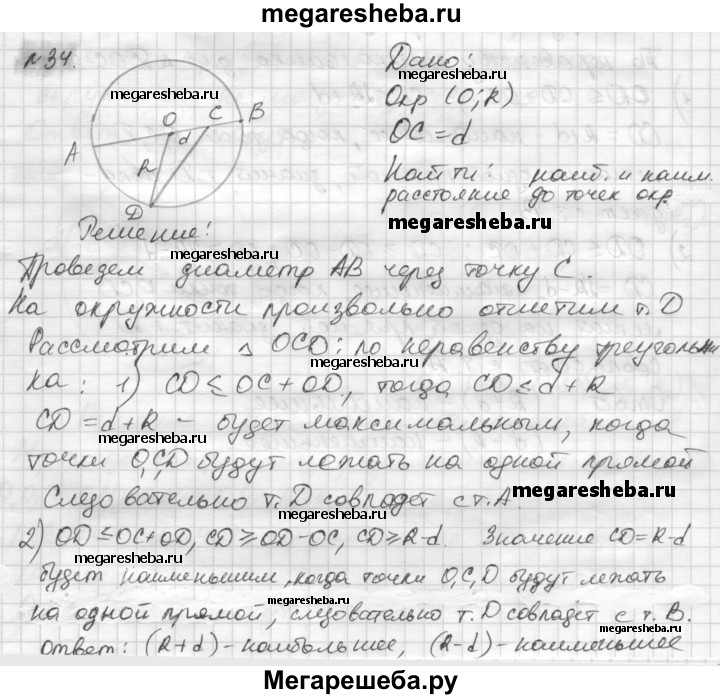 megaresheba.ru
№34.
Дано:
megaresheba.ru
Окр (O; R)
O C B
d
OC = d
A
R
Найти: наиб. и наим.
расстояние до точек окр.
D
megaresheba.ru
Решение:
megaresheba.ru
Проведем диаметр AB через точку C.
На окружности произвольно отметим т. D
Рассмотрим △ OCD: по неравенству треугольни
ка: 1) CD ≤ OC + OD, тогда CD ≤ d + R
megaresheba.ru
CD = d + R – будет максимальным, когда
megaresheba.ru
точки O,C,D будут лежать на одной прямой
Следовательно т. D совпадет с т. A.
megaresheba.ru
2) OD ≤ OC + OD, CD ≥ OD - OC, CD ≥ R - d. Значение CD = R - d
megaresheba.ru
будет наименьшим, когда точки O, C, D будут лежать
на одной прямой, следовательно т. D совпадет с т. B.
megaresheba.ru
Ответ: (R + d) – наибольшее, (R - d) – наименьшее
Мегарешеба.ру